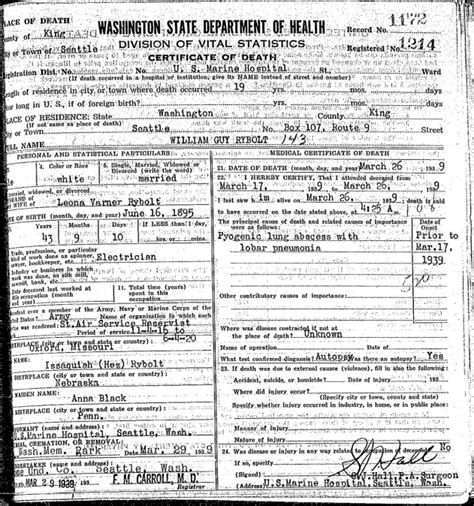 PLACE OF DEATH
WASHINGTON STATE DEPARTMENT OF HEALTH
Record No. 1172
County of King
DIVISION OF VITAL STATISTICS
City or Town of Seattle
CERTIFICATE OF DEATH
Registered No. 1214
Registration Dist. No. U. S. Marine Hospital St., Ward
(If death occurred in a hospital or institution, give its NAME instead of street and number)
Length of residence in city or town where death occurred 19 yrs. mos. days
How long in U. S., if of foreign birth? yrs. mos. days
PLACE OF RESIDENCE: State Washington County King
(If not same as place of death)
City or Town Seattle No. Box 107, Route 9 Street
FULL NAME WILLIAM GUY RYBOLT 143
PERSONAL AND STATISTICAL PARTICULARS
4. Color or Race
5. Single, Married, Widowed or Divorced (write the word)
white
married
If married, widowed or divorced
HUSBAND of
WIFE of Leona Varner Rybolt
DATE OF BIRTH (month, day, and year) June 16, 1895
43 9 10
If LESS than 1 day, hrs. min.
Trade, profession, or particular kind of work done as spinner, sawyer, bookkeeper, etc. Electrician
Industry or business in which work was done, as silk mill, saw mill, bank, etc.
Date deceased last worked at this occupation (month and year)
11. Total time (years) spent in this occupation
Army
St. Air Service Reservist
Period of service 11-8-16 to 6-4-20
BIRTHPLACE Oxford, Missouri
Issaquish (Hez) Rybolt
BIRTHPLACE Nebraska
MAIDEN NAME Anna Black
BIRTHPLACE Penn.
INFORMANT
U.S.Marine Hospital, Seattle, Wash.
BURIAL, CREMATION, OR REMOVAL
Wash. Mem. Park Date Mar. 29 193
UNDERTAKER Und. Co. Seattle, Wash.
MAR 29 1939 F. M. CARROLL, M. D.
Registrar
MEDICAL CERTIFICATE OF DEATH
21. DATE OF DEATH (month, day, and year) March 26 1939
22. I HEREBY CERTIFY, That I attended deceased from
March 17, 1939, to March 26, 1939
I last saw him alive on March 26, 1939, death is said
to have occurred on the date stated above, at 4:25 A m.
The principal cause of death and related causes of importance were as follows:
Date of Onset
Pyogenic lung abscess with lobar pneumonia
Prior to Mar.17, 1939
Other contributory causes of importance:
Where was disease contracted if not at the place of death? Unknown
Name of operation Date of
What test confirmed diagnosis? Autopsy Was there an autopsy? Yes
23. If death was due to external causes (violence), fill in also the following:
Accident, suicide, or homicide? Date of injury 193
Where did injury occur?
(Specify city or town, county and state)
Specify whether injury occurred in industry, in home, or in public place
Manner of injury
Nature of injury
24. Was disease or injury in any way related to occupation of deceased? No
If so, specify
(Signed) S J Hall
Surgeon
U.S.Marine Hospital, Seattle, Wash.